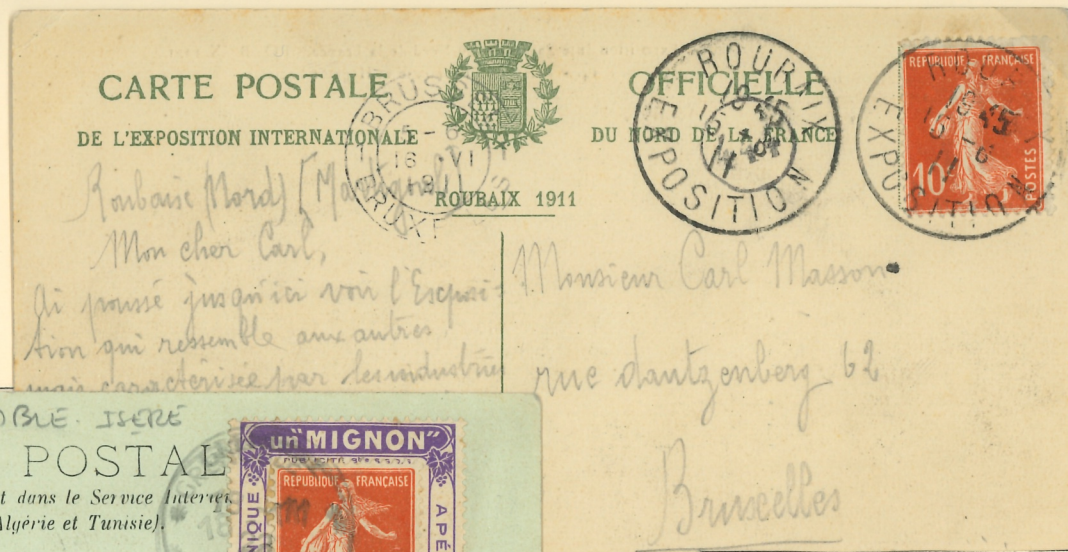 CARTE POSTALE OFFICIELLE
DE L'EXPOSITION INTERNATIONALE DU NORD DE LA FRANCE
ROUBAIX 1911
BRUXELLES
16 VI
ROUBAIX
EXPOSITION
REPUBLIQUE FRANÇAISE
10
POSTES
EXPOSITION
Roubaix (Nord)
Mon cher Carl,
Ai poussé jusqu'ici voir l'Exposi-
tion qui ressemble aux autres
mais caractérisée par les industries
Monsieur Carl Masson
rue dautzenberg 62
Bruxelles
OBLE. ISERE
POSTAL
t dans le Service Interieu
Algérie et Tunisie).
un "MIGNON"
REPUBLIQUE FRANÇAISE
NIQUE
APÉ